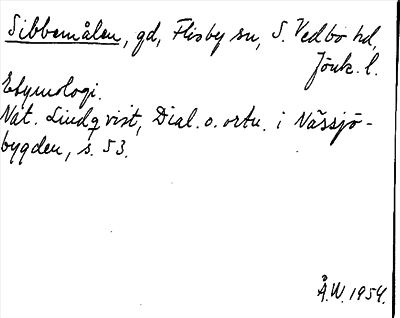 Sibbemålen, gd, Flisby sn, S. Vedbo hd,
Jönk. l.
Etymologi.
Nat. Lindqvist, Dial. o. ortn. i Nässjö-
bygden, s. 53.
Å.W. 1954.